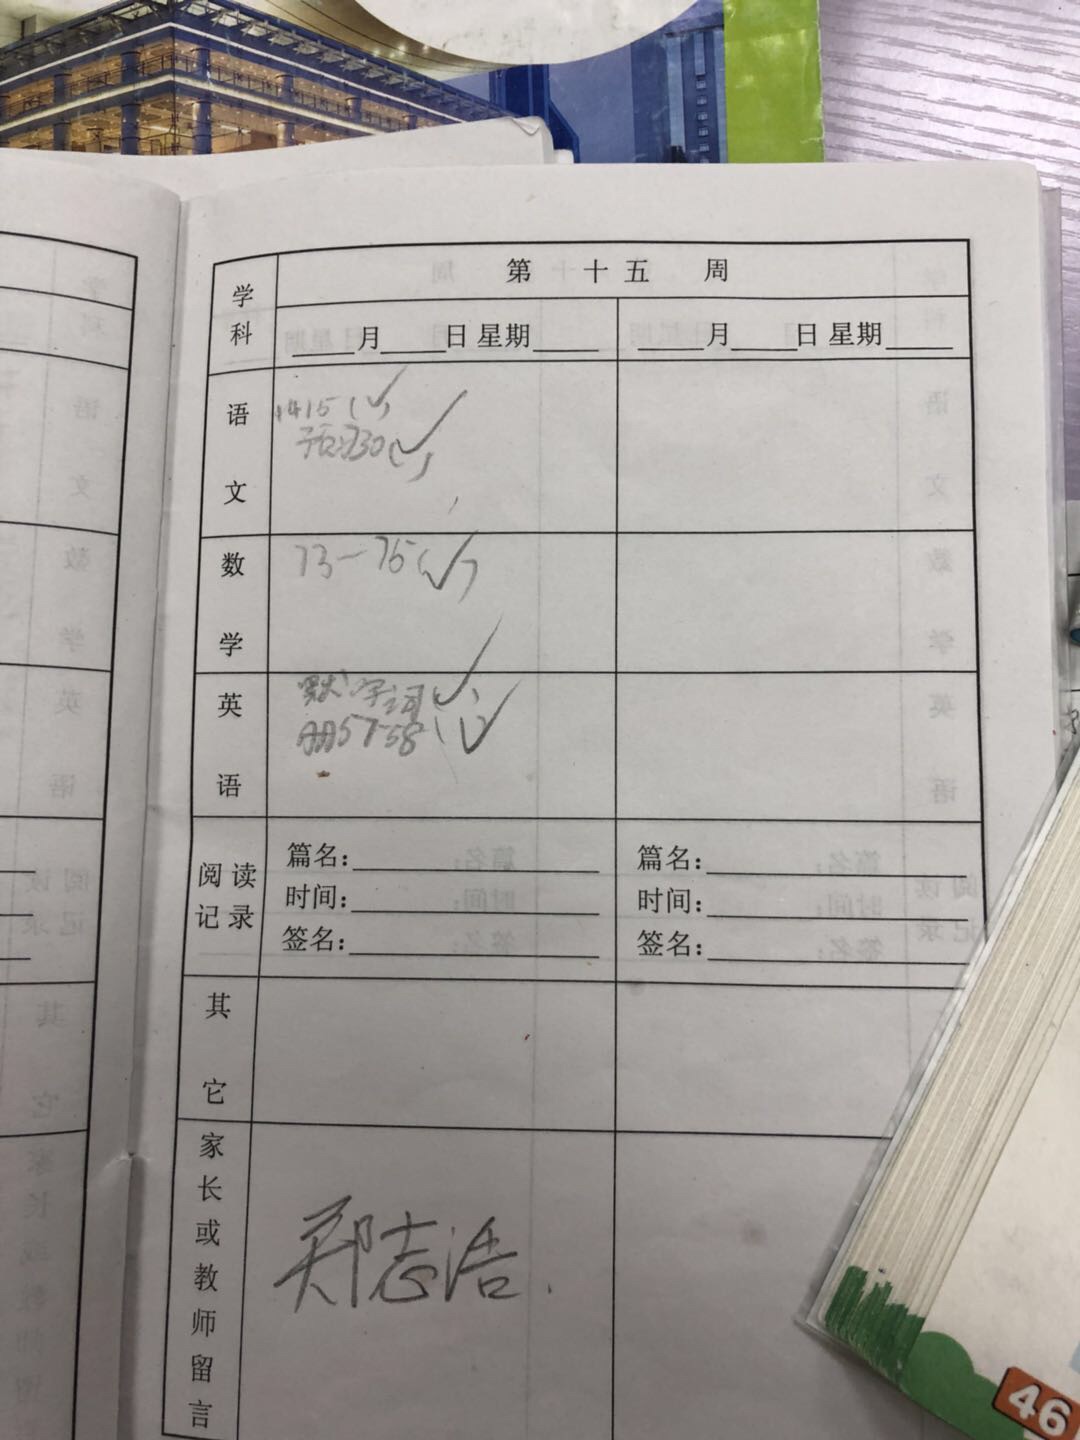 学科
第 十 五 周
____月____日 星期____ ____月____日 星期____
语文
415(✓)
预习30(✓)
数学
73—75(✓)
英语
默字词(✓)
册57-58(✓)
阅读记录
篇名: 篇名:
时间: 时间:
签名: 签名:
其它
家长或教师留言
郑志浩
46